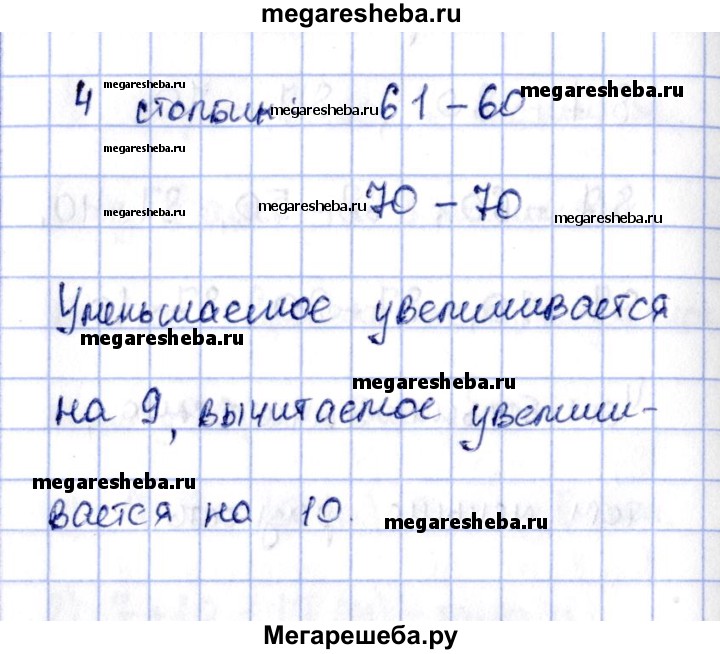 megaresheba.ru
megaresheba.ru megaresheba.ru
4 столбик: megaresheba.ru 61 - 60
megaresheba.ru
70 - 70
megaresheba.ru megaresheba.ru megaresheba.ru
Уменьшаемое увеличивается
megaresheba.ru
megaresheba.ru
на 9, вычитаемое увеличи-
megaresheba.ru
вается на 10.
megaresheba.ru
Мегарешеба.ру